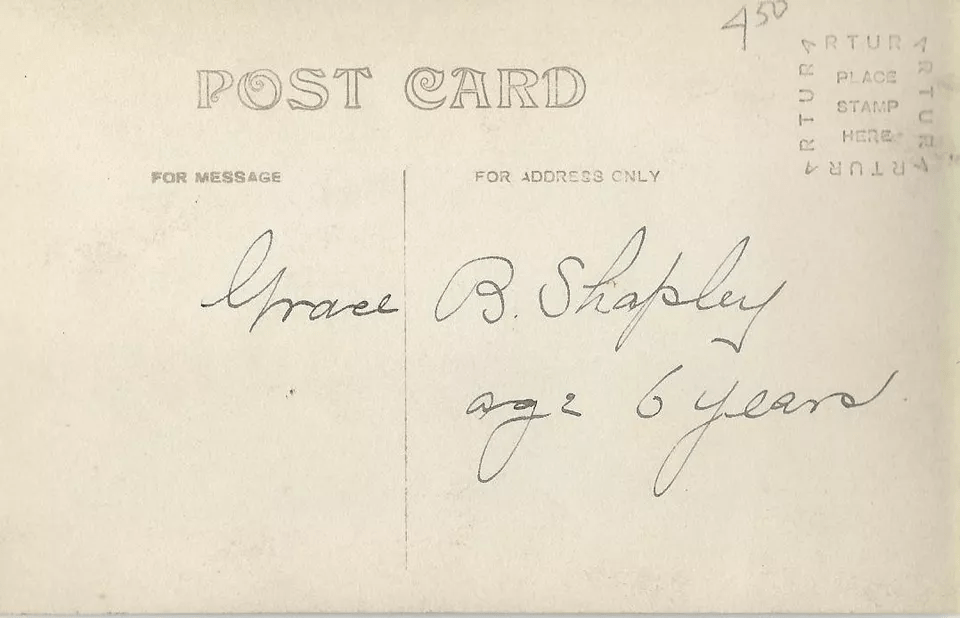 450
POST CARD
ARTURA
PLACE
STAMP
HERE
ARTURA
ARTURA
ARTURA
FOR MESSAGE
FOR ADDRESS ONLY
Grace B. Shapley
age 6 years